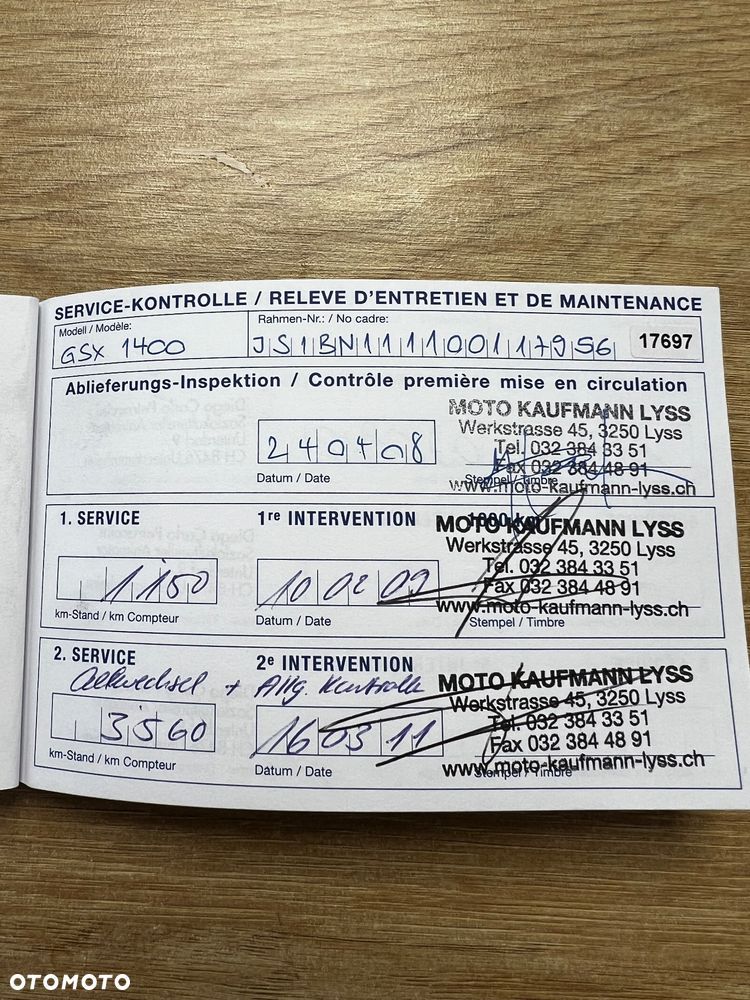 SERVICE-KONTROLLE / RELEVE D'ENTRETIEN ET DE MAINTENANCE
Modell / Modèle:
GSX 1400
Rahmen-Nr.: / No cadre:
JS1BN111100117956
17697
Ablieferungs-Inspektion / Contrôle première mise en circulation
240408
Datum / Date
MOTO KAUFMANN LYSS
Werkstrasse 45, 3250 Lyss
Tel. 032 384 33 51
Fax 032 384 48 91
Stempel / Timbre
www.moto-kaufmann-lyss.ch
1. SERVICE
1re INTERVENTION
1150
km-Stand / km Compteur
10 02 09
Datum / Date
MOTO KAUFMANN LYSS
Werkstrasse 45, 3250 Lyss
Tel. 032 384 33 51
Fax 032 384 48 91
www.moto-kaufmann-lyss.ch
Stempel / Timbre
2. SERVICE
2e INTERVENTION
Oelwechsel + Allg. Kontrolle
3560
km-Stand / km Compteur
16 03 11
Datum / Date
MOTO KAUFMANN LYSS
Werkstrasse 45, 3250 Lyss
Tel. 032 384 33 51
Fax 032 384 48 91
www.moto-kaufmann-lyss.ch
Stempel / Timbre
OTOMOTO